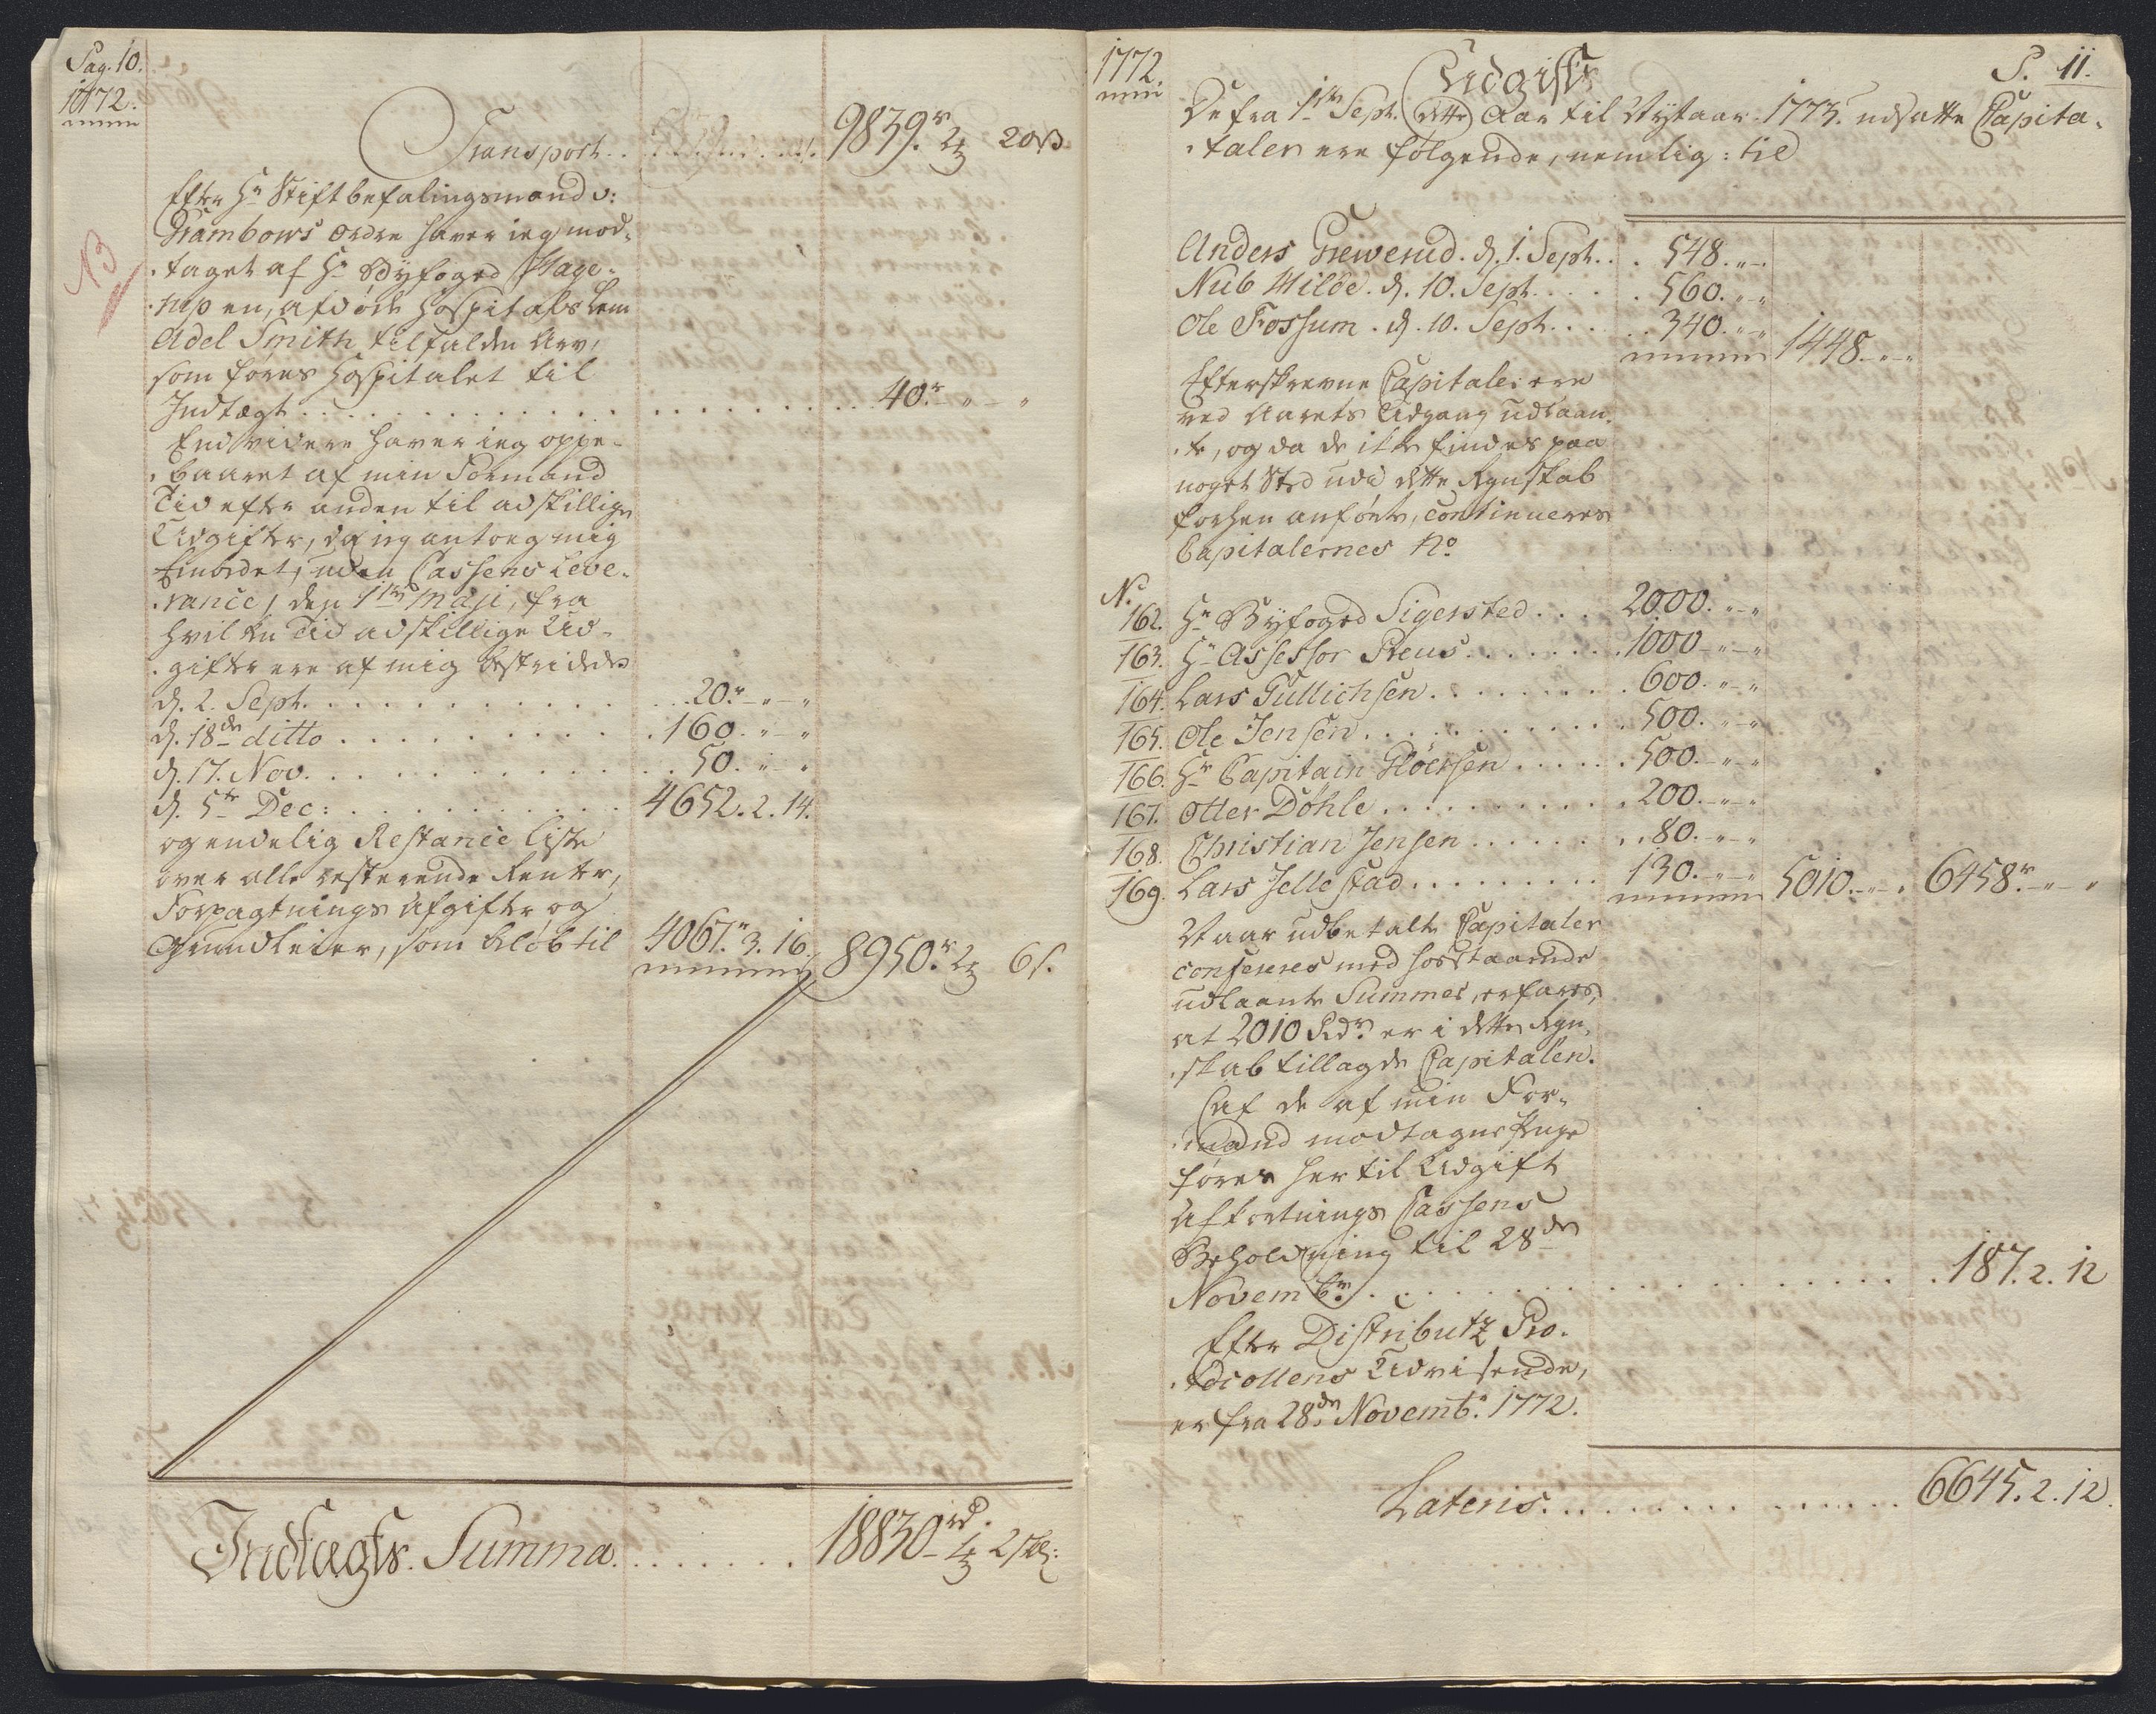 Pag. 10.
1772.
Transport . . 9839.r 2 20 ß
Efter Hr Stiftbefalingsmand v:
Krambows Ordre haver ieg mod-
NB
taget af Hr Byfoged Hage-
rup en, afdøde Hospitals Lem
Adel Smith tilfalden Arv,
som føres Hospitalet til
Indtægt . . . . 40.r - " - "
Endvidere haver ieg oppe-
baaret af min Formand
Tid efter anden til adskillige
Udgifter, da ieg antoeg mig
Embedet, uden Cassens Leve-
rance, den 1ste Maji, fra
hvilken Tid adskillige Ud-
gifter ere af mig bestridede
d. 2. Sept. . . . 20.r - " - "
d. 18de ditto . . . 160. " - "
d. 17. Nov. . . . 50. " - "
d. 5te Dec: . . . 4652. 2. 14.
og endelig Restance Liste
over alle resterende Renter,
Forpagtnings Afgifter og
Grundleier, som beløb til 4067.r 3. 16. 8950.r 2 6 s.
Indtægts Summa . . . . 18830 rd. 2 s:
1772.
Udgift
S. 11.
De fra 1ste Sept. dette Aar til Nytaar 1773. udsatte Capita-
taler ere følgende, nemlig: til
Anders Grewerud. d. 1. Sept. . . 548. " - "
Nub Milde. d. 10. Sept. . . . 560. " - "
Ole Fossum. d. 10. Sept. . . . 340. " - " 1448. " - "
Efterskrevne Capitaler ere
ved Aarets Udgang udlaan-
te, og da de ikke findes paa
noget Sted udi dette Regnskab
forhen anførte, continueres
Capitalernes No
N.
162. Hr Byfoged Sigersted . . . 2000. " - "
163. Hr Assessor Preus . . . 1000 - " - "
164. Lars Gullichsen . . . 600. " - "
165. Ole Jensen . . . 500. " - "
166. Hr Capitain Gløersen . . . 500. " - "
167. Otter Døhle . . . 200. - " - "
168. Christian Jensen . . . 80. - " - "
169. Lars Jellestad . . . 130. - " - " 5010. - " - . 6458.r - " - "
Naar udbetalte Capitaler
confereres med hosstaaende
udlaante Summer, erfares,
at 2010 Rdr er i dette Regn-
skab tillagde Capitalen.
af de af min For-
mand modtagne Penge
føres her til Udgift
Afkortnings Cassens
Beholdning til 28de
Novembr. . . . 187. 2. 12
Efter Distributz Pro-
tocollens Udvisende,
er fra 28de Novemb. 1772.
Lateris . . . . 6645. 2. 12.